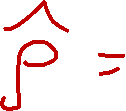 p̂ =